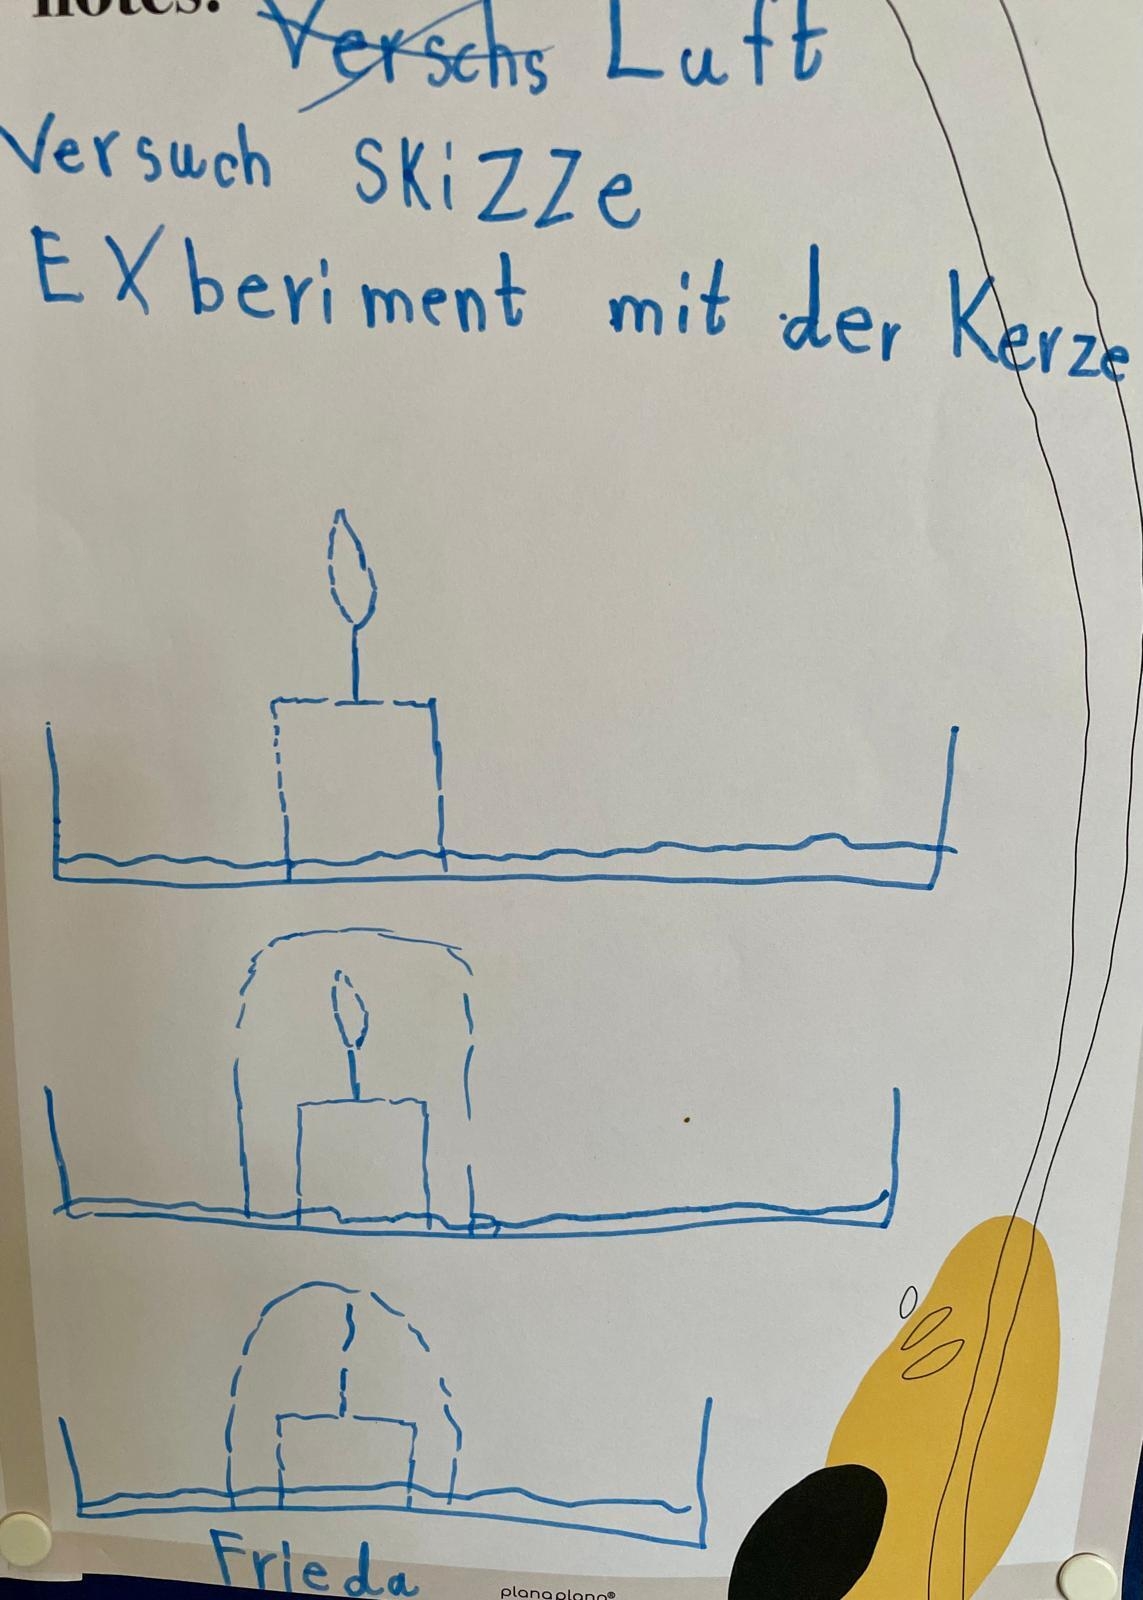 notes:
Verschs Luft
Versuch Skizze
EXberiment mit der Kerze
Frieda
planaplana®